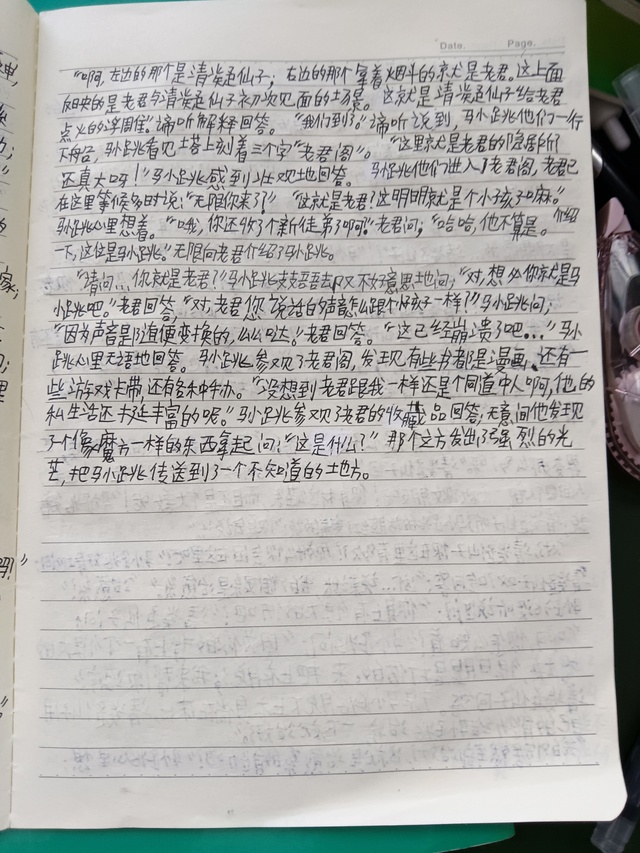 Date.
Page.
"啊,左边的那个是清凝仙子;右边的那个拿着烟斗的就是老君。这上面
刻的是老君与清凝仙子初次见面的场景。这就是清凝仙子给老君
点火的"谛听解释回答。"我们到了。"谛听说到,马小跳他们一行
马小跳看见塔上刻着三个字"老君阁"。"这里就是老君的隐居
还真大呀!"马小跳感到壮观地回答。马小跳他们进入了老君阁,老君已
在这里等候多时说:"无限你来了""这就是老君?这明明就是个小孩子嘛。"
马小跳心里想着。"哦,你还收了个新徒弟了啊。"老君问;"哈哈,他不算是。介绍
一下,这位是马小跳。"无限向老君介绍了马小跳。
"请问…你就是老君?"马小跳支支吾吾又不好意思地问;"对,想必你就是马
小跳吧。"老君回答,"对,老君您说话的声音怎么跟个小孩子一样?"马小跳问;
"因为声音是随便变换的,么么哒。"老君回答。"这已经崩溃了吧…"马小
跳心里无语地回答。马小跳参观了老君阁,发现有些书都是漫画,还有一
些游戏卡带,还有各种手办。"没想到老君跟我一样还是个同道中人啊,他的
私生活还挺丰富的呢。"马小跳参观了老君的收藏品回答,无意间他发现
了个像魔方一样的东西拿起问:"这是什么?"那个立方发出了强烈的光
芒,把马小跳传送到了一个不知道的地方。